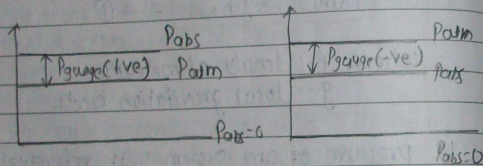 Pabs
Pguage(+ve)
Patm
Pabs=0
Patm
Pgauge(-ve)
Pabs
Pabs=0